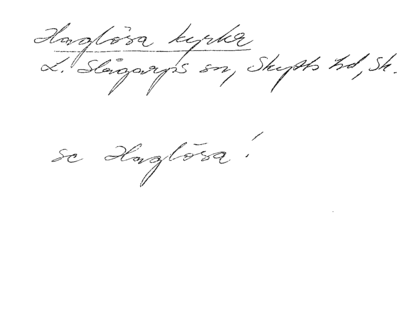 Haglösa kyrka
L. Slågarps sn, Skytts hd, Sk.
se Haglösa!